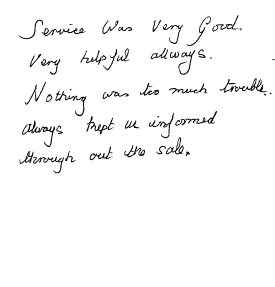 Service Was Very Good.
Very helpful allways.
Nothing was too much trouble.
always kept us informed
through out the sale.